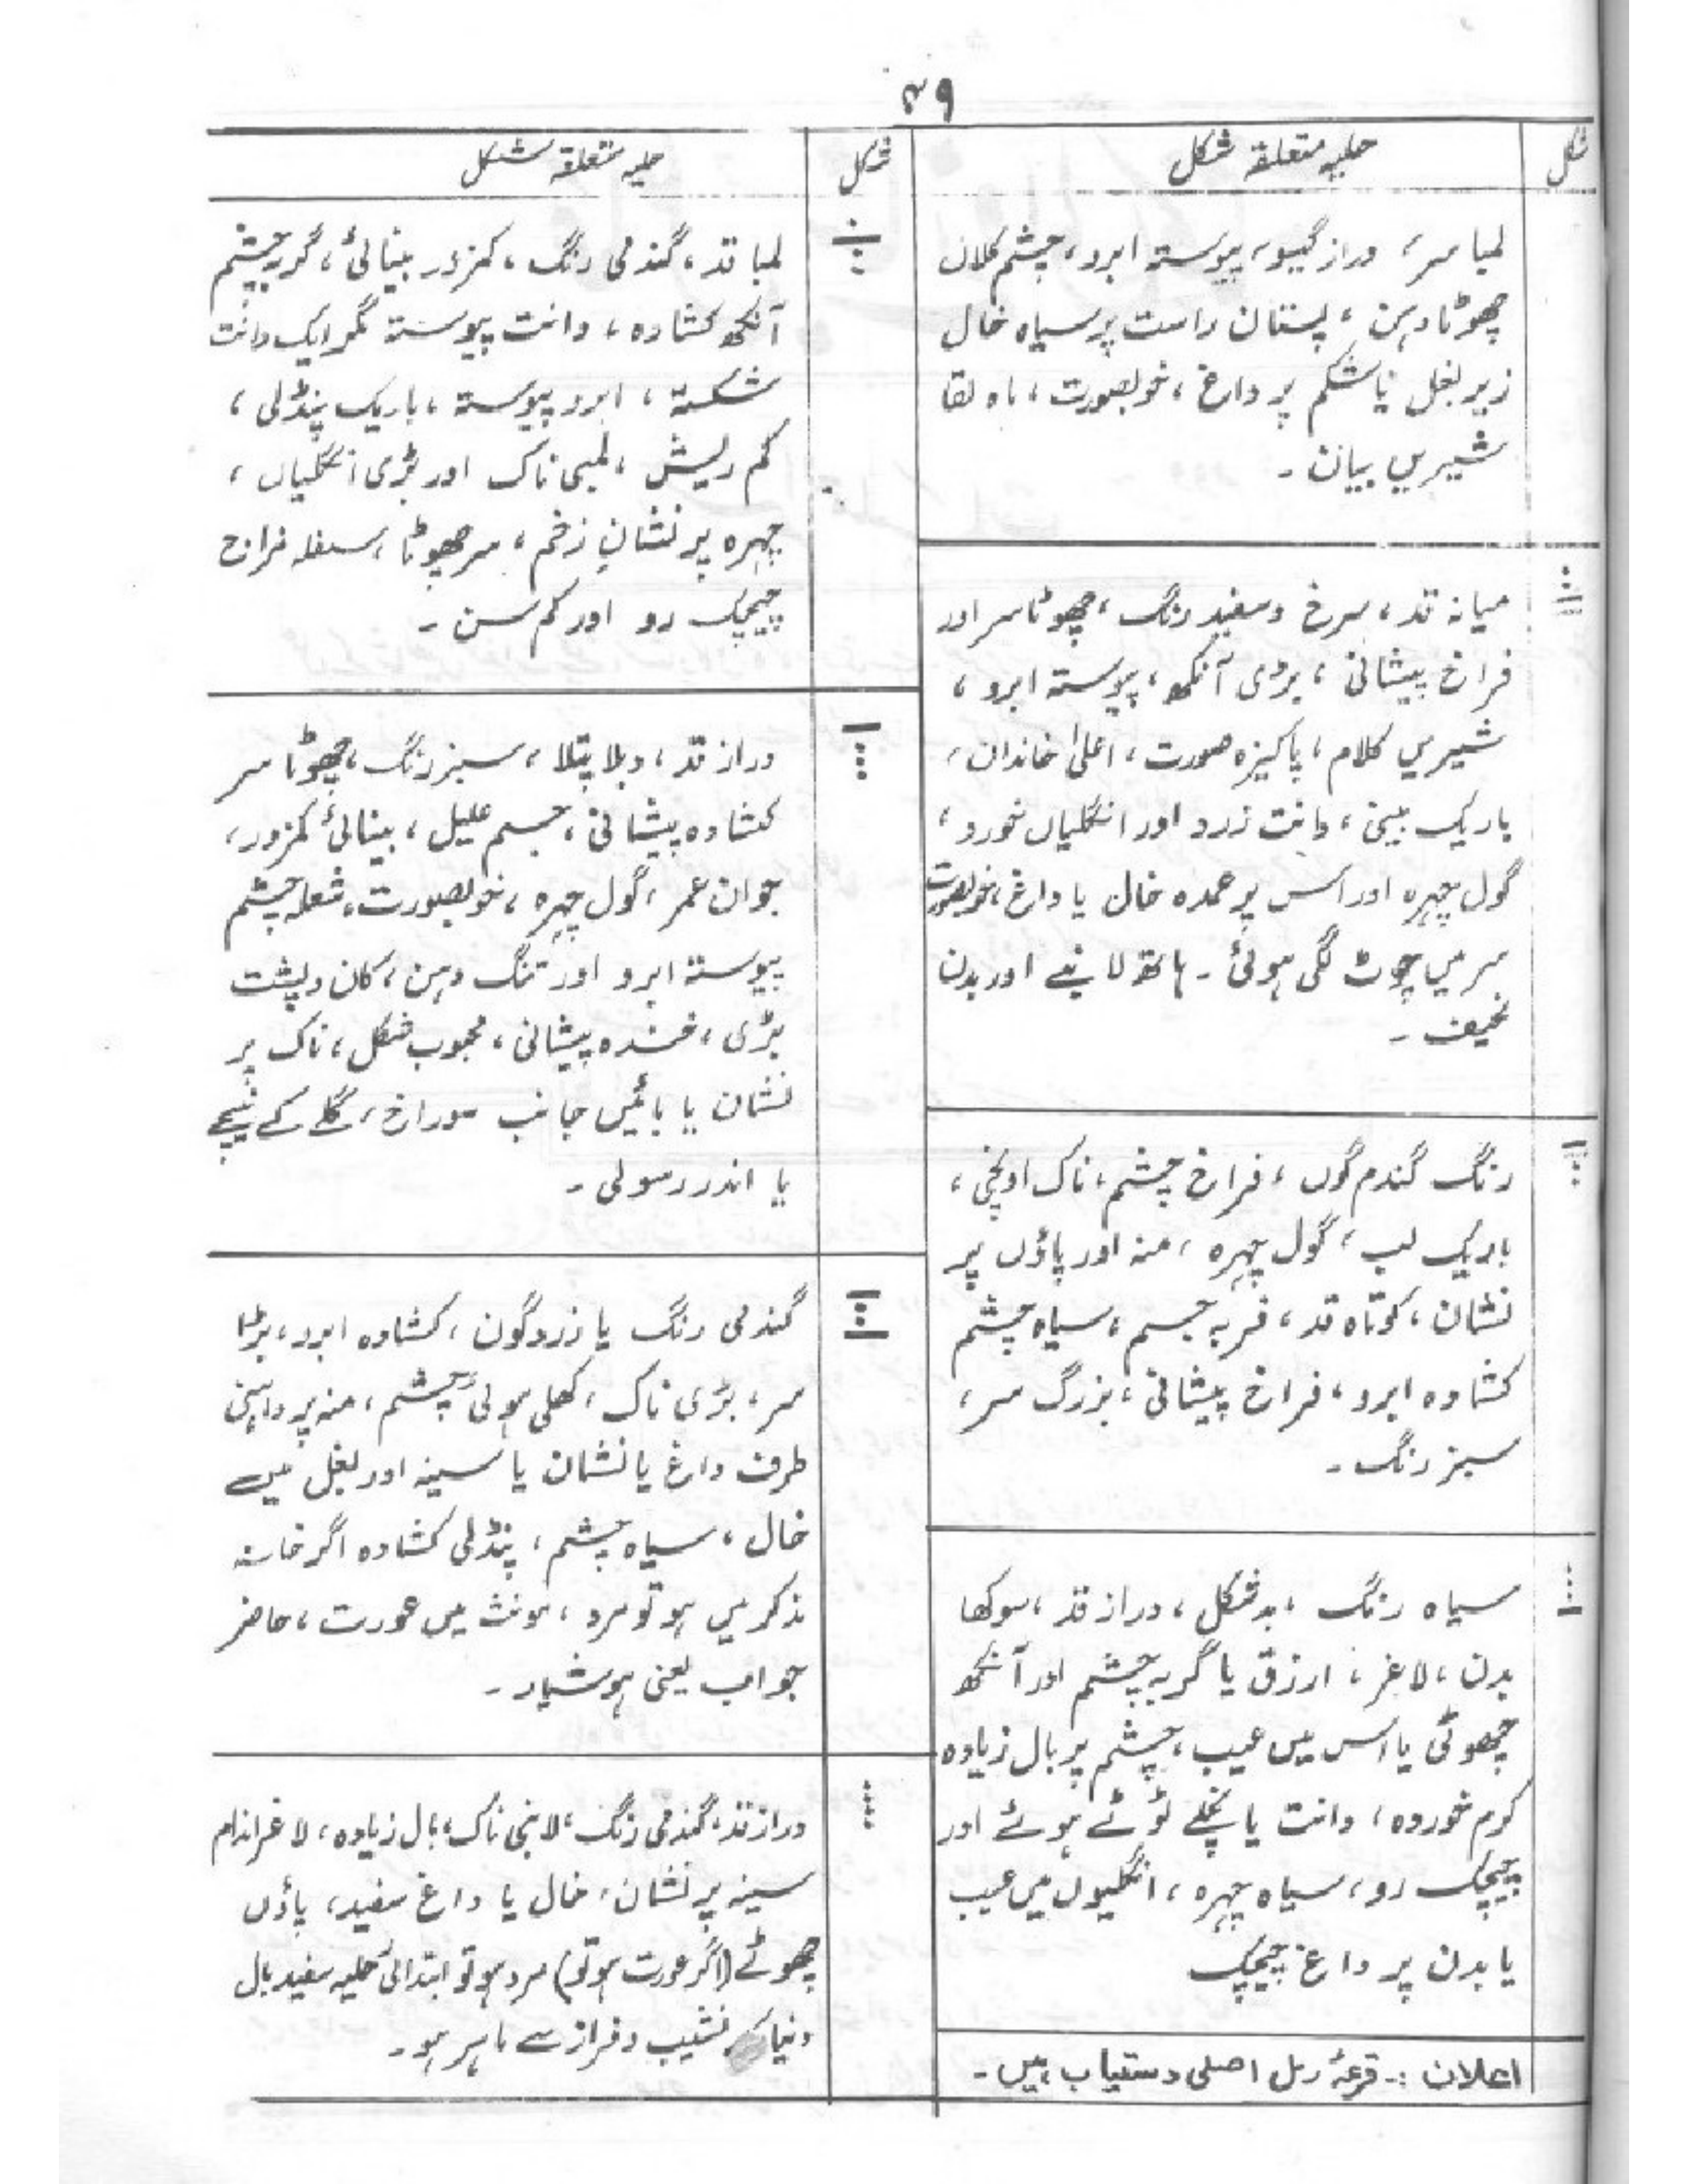 ۳۹
شکل
حلیہ متعلقہ شکل
لمبا سر، دراز گیسو، پیوستہ ابرو، چشم کلاں
چھوٹا دہن، پستان راست پر سیاہ خال
زیر بغل یا شکم پر داغ، خوبصورت، ماہ لقا
شیریں بیان ۔
میانہ قد، سرخ و سفید رنگ، چھوٹا سر اور
فراخ پیشانی، بڑی آنکھ، پیوستہ ابرو،
شیریں کلام، پاکیزہ صورت، اعلیٰ خاندان،
باریک بینی، دانت زرد اور انگلیاں خورد،
گول چہرہ اور اس پر عمدہ خال یا داغ، خوبصورت
سر میں چوٹ لگی ہوئی ۔ ہاتھ لانبے اور بدن
نحیف ۔
رنگ گندم گوں، فراخ چشم، ناک اونچی،
باریک لب، گول چہرہ، منہ اور پاؤں پر
نشان، کوتاہ قد، فربہ جسم، سیاہ چشم
کشادہ ابرو، فراخ پیشانی، بزرگ سر،
سبز رنگ ۔
سیاہ رنگ، بدشکل، دراز قد، سوکھا
بدن، لاغر، ارزق یا گربہ چشم اور آنکھ
چھوٹی یا اس میں عیب، چشم پر بال زیادہ
کرم خوردہ، دانت یا نچلے ٹوٹے ہوئے اور
چیچک رو، سیاہ چہرہ، انگلیوں میں عیب
یا بدن پر داغ چیچک
اعلان :۔ قرعۂ رمل اصلی دستیاب ہیں ۔
شکل
حلیہ متعلقہ شکل
لمبا قد، گندمی رنگ، کمزور بینائی، گربہ چشم
آنکھ کشادہ، دانت پیوستہ مگر ایک دانت
شکستہ، ابرو پیوستہ، باریک پنڈلی،
کم ریش، لمبی ناک اور بڑی انگلیاں،
چہرہ پر نشانِ زخم، سر چھوٹا، سفلہ مزاج
چیچک رو اور کم سن ۔
دراز قد، دبلا پتلا، سبز رنگ، چھوٹا سر
کشادہ پیشانی، جسم علیل، بینائی کمزور،
جوان عمر، گول چہرہ، خوبصورت، شعلہ چشم
پیوستہ ابرو اور تنگ دہن، کان و پشت
بڑی، خندہ پیشانی، محبوب شکل، ناک پر
نشان یا بائیں جانب سوراخ، گلے کے نیچے
یا اندر رسولی ۔
گندمی رنگ یا زردگون، کشادہ ابرو، بڑا
سر، بڑی ناک، کھلی ہوئی چشم، منہ پر داہنی
طرف داغ یا نشان یا سینہ اور بغل میں
خال، سیاہ چشم، پنڈلی کشادہ اگر خانہ
مذکر میں ہو تو مرد، مونث میں عورت، حاضر
جواب یعنی ہوشیار ۔
دراز قد، گندمی رنگ، لانبی ناک، بال زیادہ، لاغر اندام
سینہ پر نشان، خال یا داغ سفید، پاؤں
چھوٹے (اگر عورت ہو تو) مرد ہو تو ابتدائی حلیہ سفید بال
دنیا کے نشیب و فراز سے ماہر ہو ۔